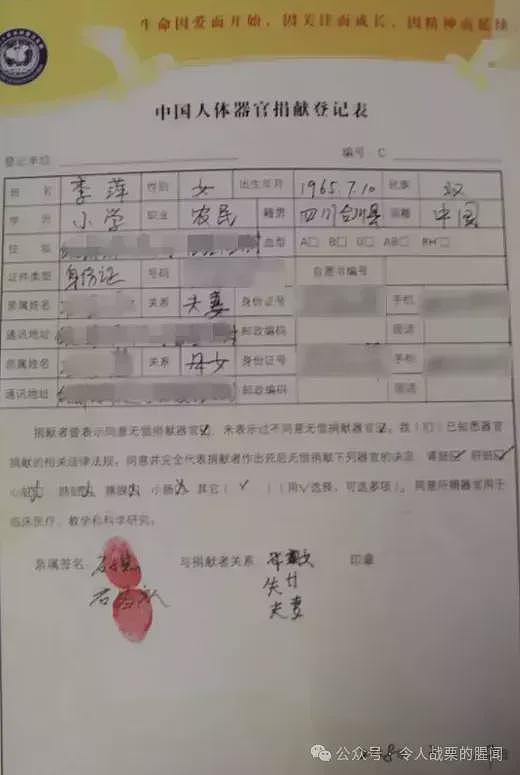 生命因爱而开始，因关注而成长，因精神而延续
中国人体器官捐献登记表
登记单位 编号：C
姓 名 李萍 性别 女 出生年月 1965.7.10 民族 汉
学 历 小学 职业 农民 籍贯 四川 国籍 中国
住 址 血型 A□ B□ O□ AB□ RH□
证件类型 身份证 号码 自愿书编号
亲属姓名 关系 夫妻 身份证号 手机
通讯地址 邮政编码 固话
亲属姓名 关系 母女 身份证号 手机
通讯地址 邮政编码 固话
捐献者曾表示同意无偿捐献器官☑，未表示过不同意无偿捐献器官☑。我（们）已知悉器官
捐献的相关法律法规。同意并完全代表捐献者作出死后无偿捐献下列器官的决定：肾脏☑ 肝脏☑
心脏 肺脏 胰腺 小肠 其它（ √ ）（用√选择，可选多项）。同意所捐器官用于
临床医疗、教学和科学研究。
亲属签名： 与捐献者关系： 印章
夫妻
公众号·令人战栗的腥闻